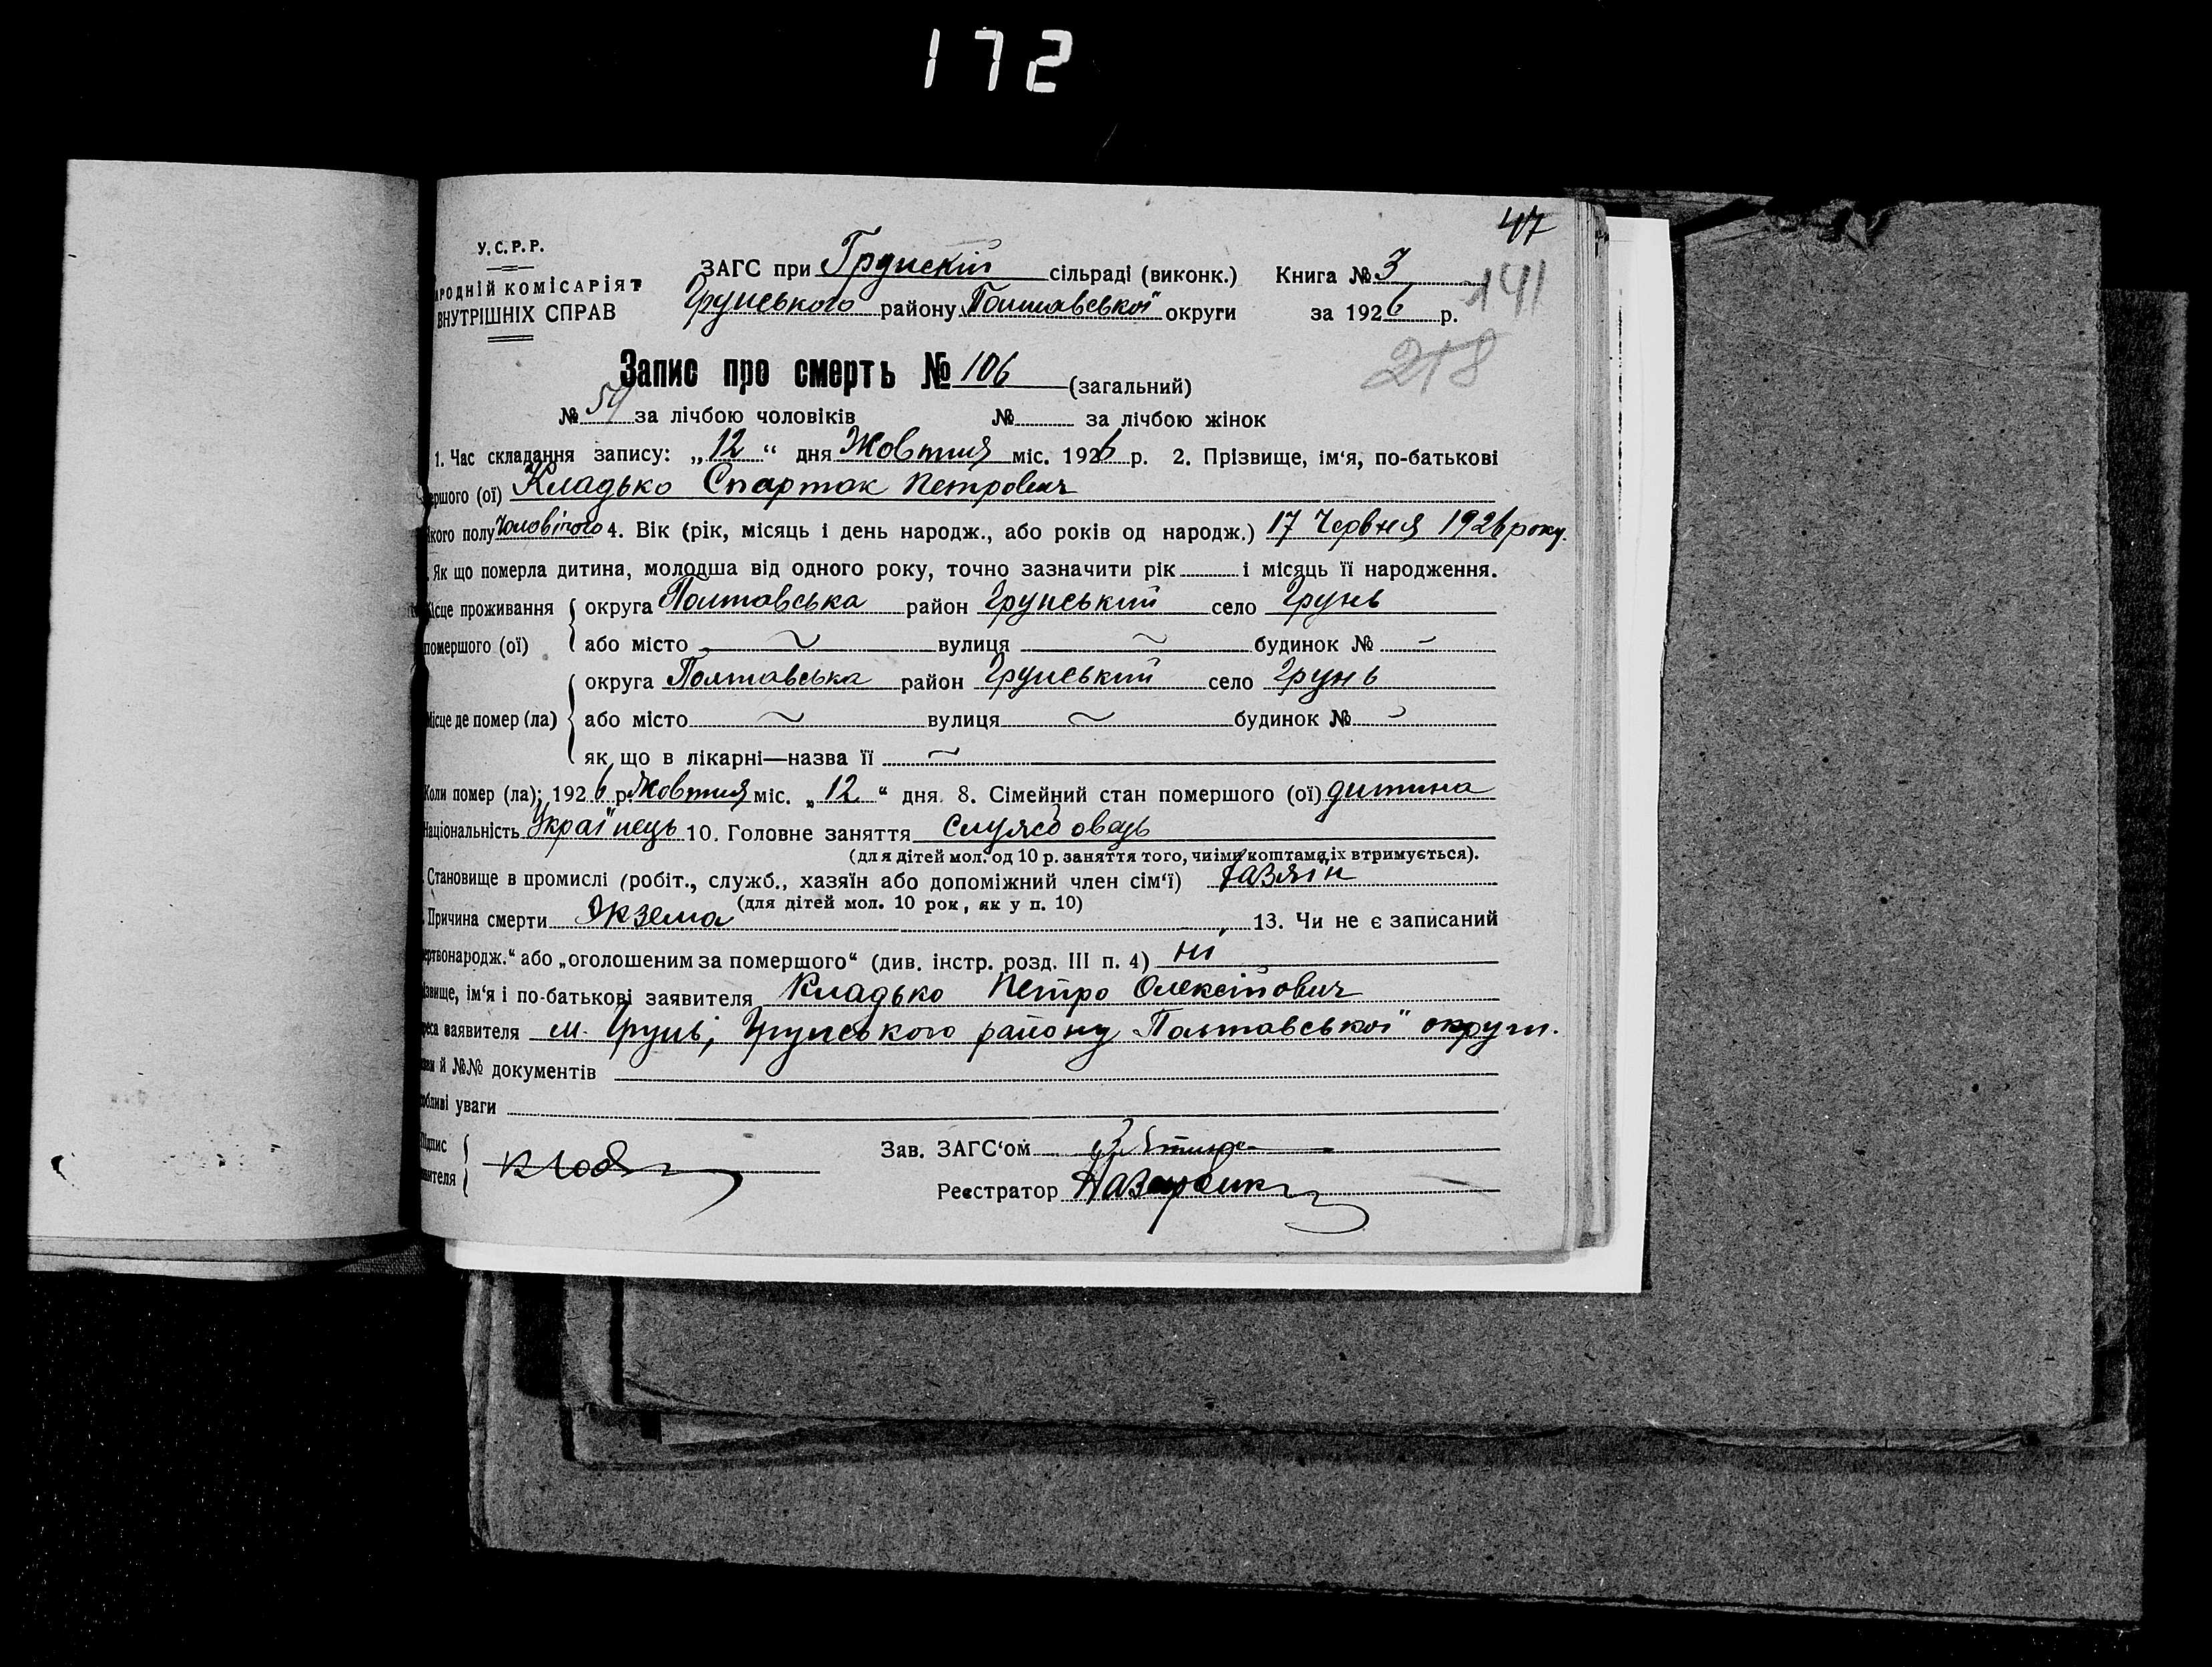 172
47
У.С.Р.Р.
АРОДНІЙ КОМІСАРІЯТ
ВНУТРІШНІХ СПРАВ
ЗАГС при Грунскій сільраді (виконк.) Книга № 3
141
Грунського району Полтавської округи за 1926 р.
218
Запис про смерть № 106 (загальний)
№ 54 за лічбою чоловіків № за лічбою жінок
1. Час складання запису: „12“ дня Жовтня міс. 1926 р. 2. Прізвище, ім‘я, по-батькові
ершого (ої) Кладько Спартак Петрович
кого полу Чоловічого 4. Вік (рік, місяць і день народж., або років од народж.) 17 Червня 1926 року.
. Як що померла дитина, молодша від одного року, точно зазначити рік і місяць її народження.
ісце проживання округа Полтавська район Грунський село Грунь
помершого (ої) або місто ~ вулиця ~ будинок № -
округа Полтавська район Грунський село Грунь
Місце де помер (ла) або місто ~ вулиця ~ будинок № ~
як що в лікарні—назва її ~
Коли помер (ла); 1926 р. Жовтня міс. „12“ дня. 8. Сімейний стан помершого (ої) дитина
Національність Українець 10. Головне заняття Службовець
(для дітей мол. од 10 р. заняття того, чиїми коштами їх втримується).
. Становище в промислі (робіт., служб., хазяїн або допоміжний член сім‘ї) хазяїн
(для дітей мол. 10 рок, як у п. 10)
. Причина смерти Экзема 13. Чи не є записаний
ертвонародж.“ або „оголошеним за помершого“ (див. інстр. розд. III п. 4) ні
ізвище, ім‘я і по-батькові заявителя Кладько Петро Олексійович
реса заявителя м. Грунь, Грунського району Полтавської округи.
й №№ документів
обливі уваги
Підпис Зав. ЗАГС‘ом
вителя Реєстратор